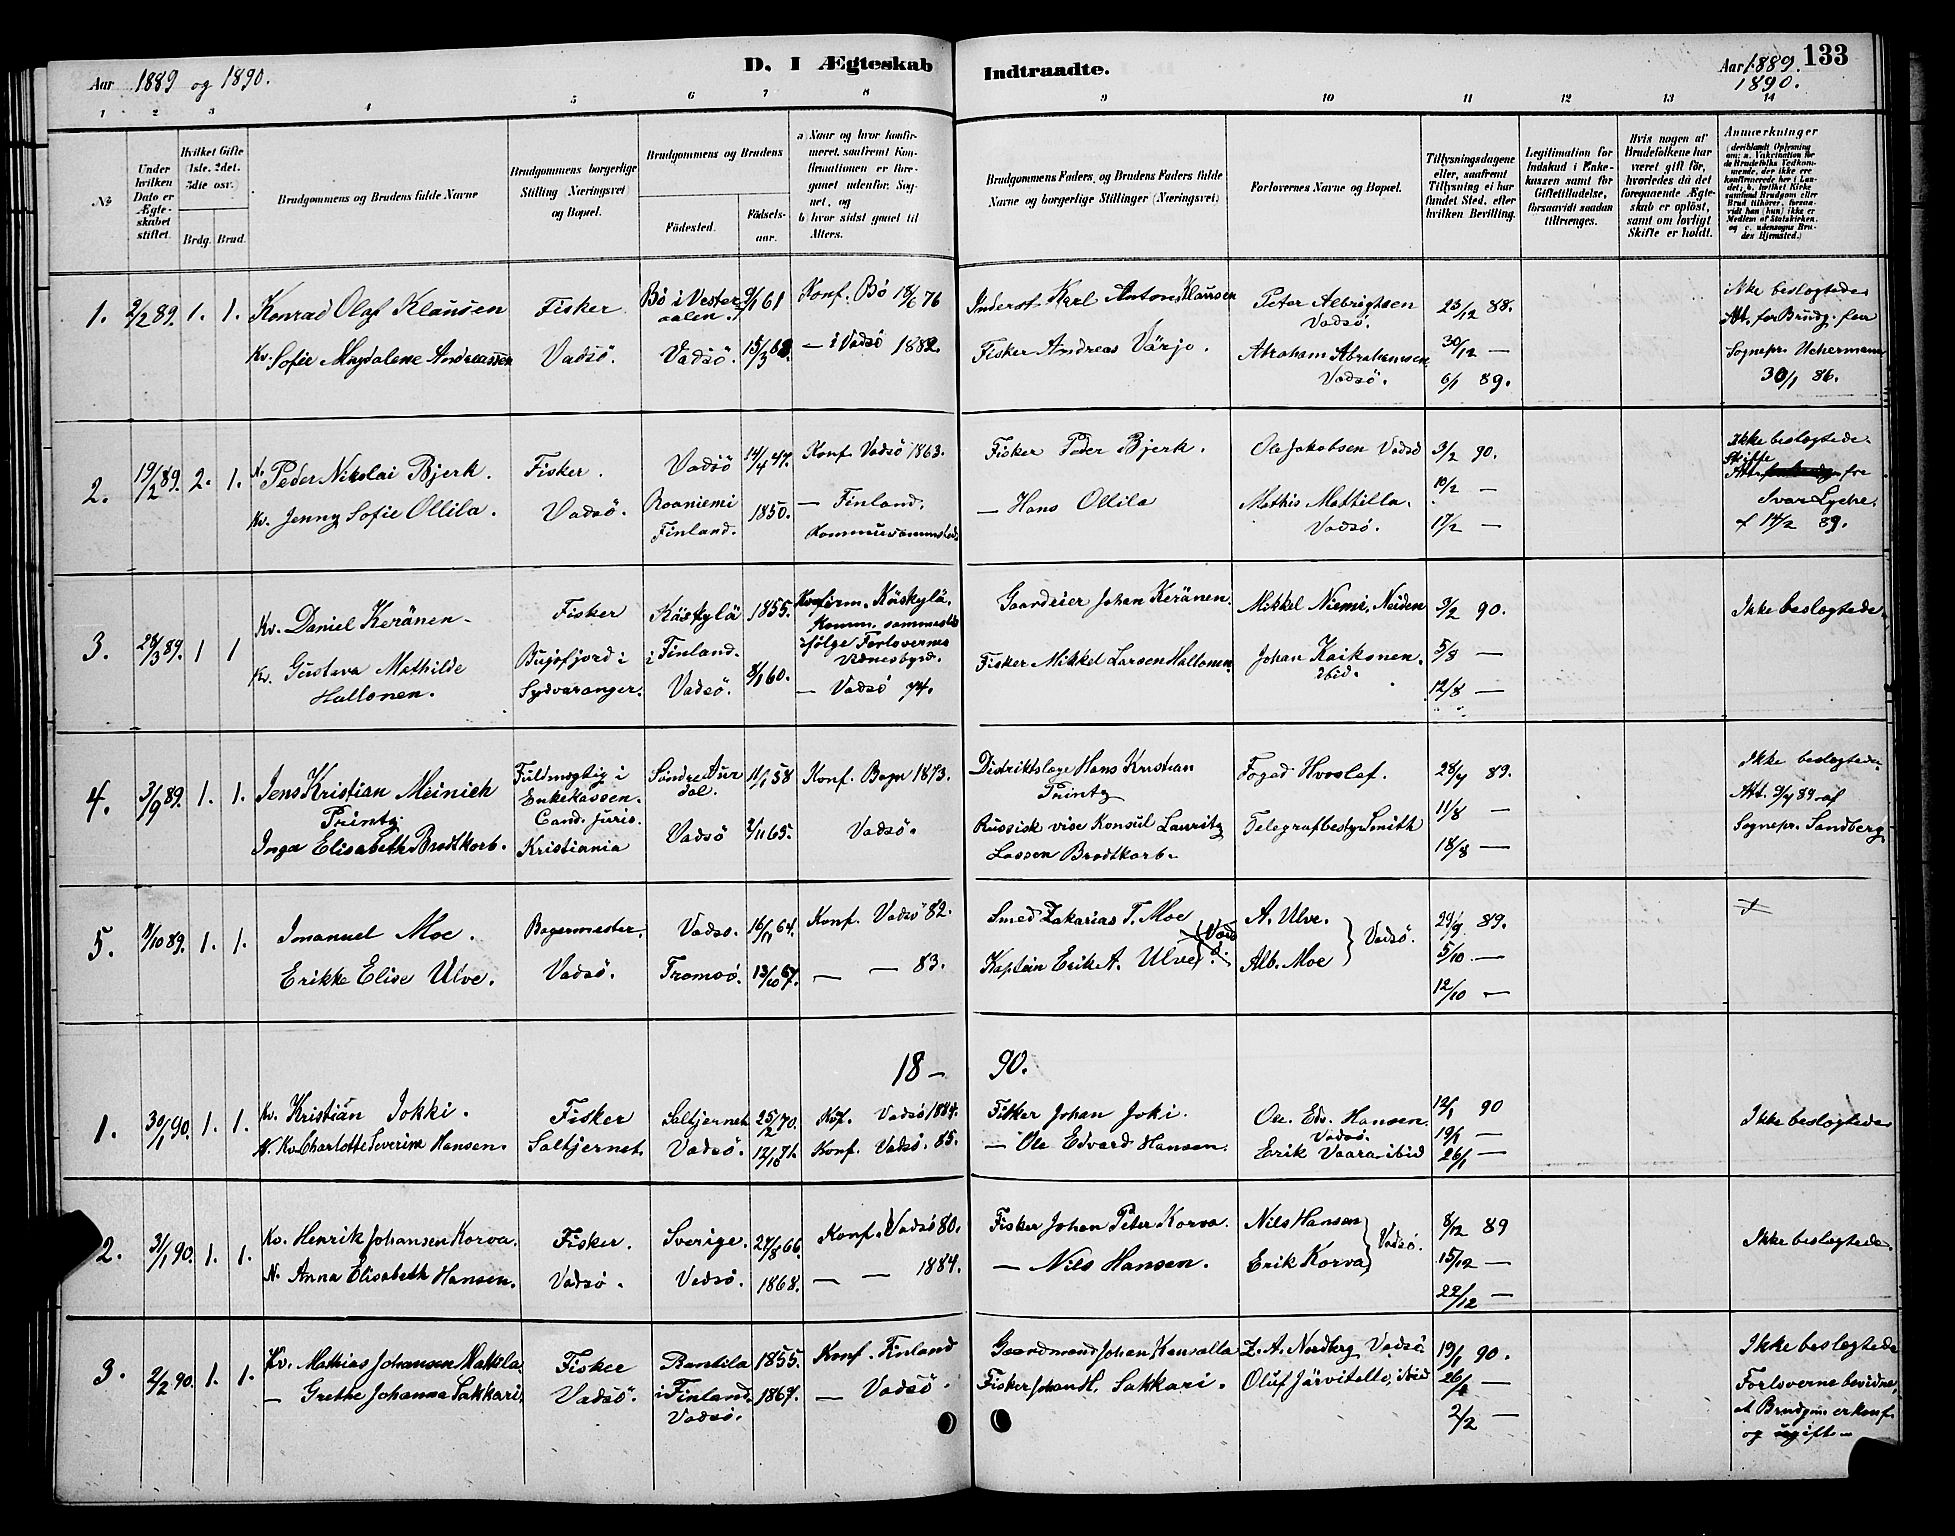 Aar 1889 og 1890.
D. I Ægteskab
Indtraadte.
Aar 1889. 133
1890.
1 2 3 4 5 6 7 8 9 10 11 12 13 14
No
Under hvilken Dato er Ægteskabet stiftet.
Hvilket Gifte (1ste, 2det, 3die osv.)
Brdg. Brud.
Brudgommens og Brudens fulde Navne
Brudgommens borgerlige Stilling (Næringsvei) og Bopæl.
Brudgommens og Brudens
Fødested.
Fødsels-aar.
a) Naar og hvor konfirmeret, saafremt Konfirmationen er foregaaet udenfor Sognet, og
b) hvor sidst gaaet til Alters.
Brudgommens Faders, og Brudens Faders fulde Navne og borgerlige Stillinger (Næringsvei)
Forlovernes Navne og Bopæl.
Tillysningsdagene eller, saafremt Tillysning ei har fundet Sted, efter hvilken Bevilling.
Legitimation for Indskud i Enkekassen samt for Giftetilladelse, forsaavidt saadan tiltrænges.
Hvis nogen af Brudefolkene har været gift før, hvorledes da det foregaaende Ægteskab er opløst, samt om lovligt Skifte er holdt.
Anmerkninger (deriblandt Oplysning om: a. Vakcination for de Brudefolks Vedkommende, der ikke ere konfirmerede her i Landet; b. hvilket Kirkesamfund Brudgom eller Brud tilhører, forsaavidt han (hun) ikke er Medlem af Statskirken, og c. udensogns Brudes Hjemsted.)
1. 2/2 89. 1. 1. Konrad Olaf Klausen Fisker Bö i Vesteraalen. 9/1 61 Konf. Bö 18/6 76 Inderst Karl Anton Klausen Peter Albrigtsen Vadsö. 23/12 88. Ikke beslægtede
Kv. Sofie Magdalene Andreassen Vadsö. Vadsö. 15/3 - i Vadsö 1882. Fisker Andreas Värjo. Abraham Abrahamsen Vadsö. 30/12 — Att. for Brudg. fra Sognepr. Uchermann
6/1 89. 30/1 86.
2. 19/2 89. 2. 1. N. Peder Nikolai Bjerk. Fisker. Vadsö 14/4 47. Konf. Vadsö 1863. Fisker Peder Bjerk. Ole Jakobsen Vadsö 3/2 90. Ikke beslægtede.
Kv. Jenny Sofie Ollila. Vadsö. Roaniemi Finland. 1850. — Finland. — Hans Ollila Mathis Mattilla. Vadsö. 10/2 — Skifte Att. fra
17/2 — f 14/2 89.
3. 28/3 89. 1 1 Kv. Daniel Keränen. Fisker Käskylä i Finland. 1855. Konfirm. Käskylä. Komm. sammested ifölge Forlovernes Vidnesbyrd. Gaardeier Johan Keränen. Mikkel Niemi, Neiden 3/2 90. Ikke beslægtede
Kv. Gustava Mathilde Hallonen. Bugöfjord i Sydvaranger. Vadsö. 8/1 60. — Vadsö 74. Fisker Mikkel Larsen Hallonen. Johan Kaikonen. ibid. 5/8 —
12/8 —
4. 3/9 89. 1. 1. Jens Kristian Meinich Printz. Fuldmægtig i Enkekassen. Cand. juris. Söndre Aurdal. 11/1 58 Konf. Bagn 1873. Distriktslæge Hans Kristian Printz Foged Hvoslef. 28/7 89. Ikke beslægtede.
Inga Elisabeth Brodtkorb. Kristiania Vadsö 2/11 65. Vadsö. Russisk vice Konsul Lauritz Lassen Brodtkorb. Telegrafbesty. Smith 11/8 — Att. 3/7 89 af Sognepr. Sandberg.
18/8 —
5. 8/10 89. 1. 1. Imanuel Moe. Bagermester. Vadsö. 16/11 64. Konf. Vadsö 82. Smed Zakarias T. Moe A. Ulve. Vadsö. 29/9 89.
Erikke Elise Ulve. Vadsö. Tromsö. 13/10 67. — — 83. Kaptein Erik A. Ulve Alb. Moe 5/10 —
12/10 —
18 — 90.
1. 30/1 90. 1. 1. Kv. Kristian Jokki. Fisker Saltjernet 25/2 70. Kof. Vadsö 1884. Fisker Johan Joki. Ole Edv. Hansen Vadsö. 12/1 90 Ikke beslægtede
N. Kv. Charlotte Severine Hansen. Saltjernet. Vadsö. 12/10 Konf. Vadsö. 85. — Ole Edvard Hansen. Erik Vaara ibid 19/1 —
26/1 —
2. 31/1 90. 1. 1. Kv. Henrik Johansen Korva. Fisker. Sverige. 27/8 66. Konf. Vadsö 80. Fisker Johan Peter Korva. Nils Hansen Vadsö. 8/12 89 Ikke beslægtede.
N. Anna Elisabeth Hansen. Vadsö. Vadsö. 1868. — — 1884. — Nils Hansen. Erik Korva 15/12 —
22/12 —
3. 2/2 90. 1. 1. Kv. Mathias Johansen Mattila. Fisker Rantila i Finland. 1855. Konf. Finland Gaardmand Johan Kansalla Z. A. Nordberg Vadsö 19/1 90. Ikke beslægtede
— Grethe Johanna Sakkari. Vadsö. Vadsö. 1867. — Vadsö. Fisker Johan H. Sakkari. Oluf Järvitello, ibid 26/1 — Forloverne bevidne,
2/2 — at Brudgm. er konf. og ugift.